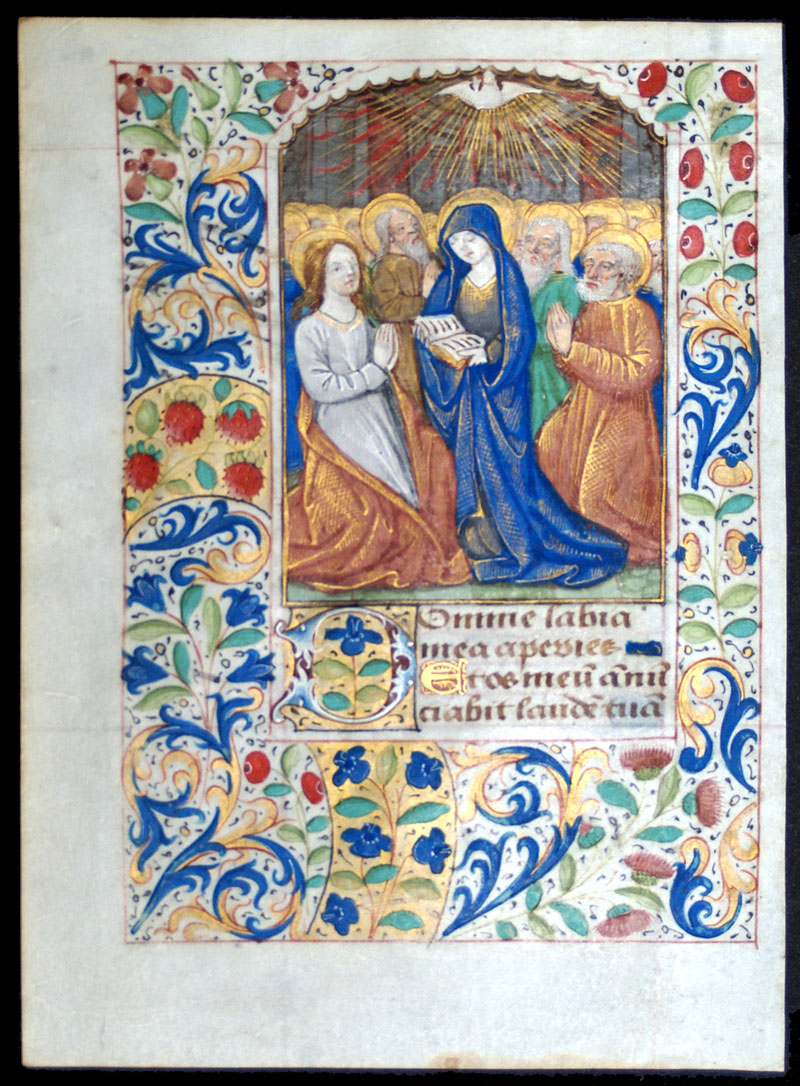 Domine labia
mea aperies
Et os meū ānū
ciabit laudē tuā